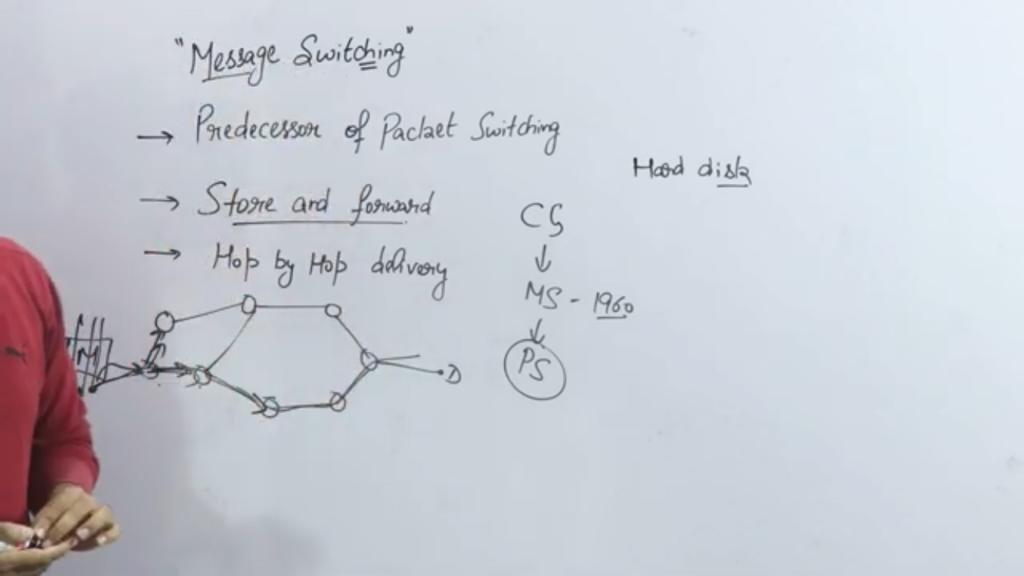 "Message Switching"
→ Predecessor of Packet Switching
Hard disk
→ Store and forward
→ Hop by Hop delivery
CS
↓
MS - 1960
↓
PS
M
D